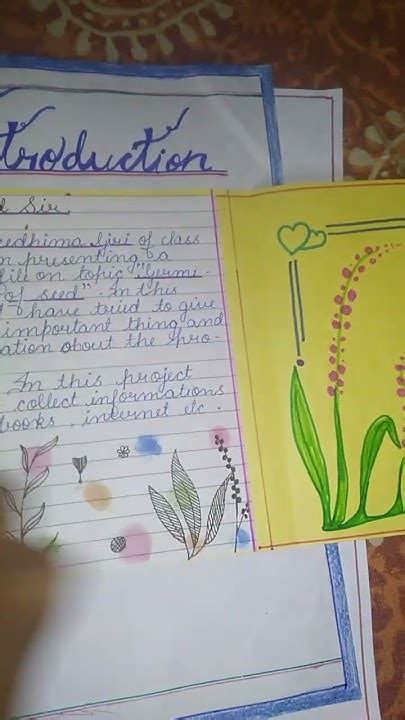 troduction
d Sir,
edhima Giri of class
m presenting a
fill on topic "Germi-
of seed". In this
I have tried to give
important thing and
ation about the pro-
In this project
collect informations
books, internet etc.